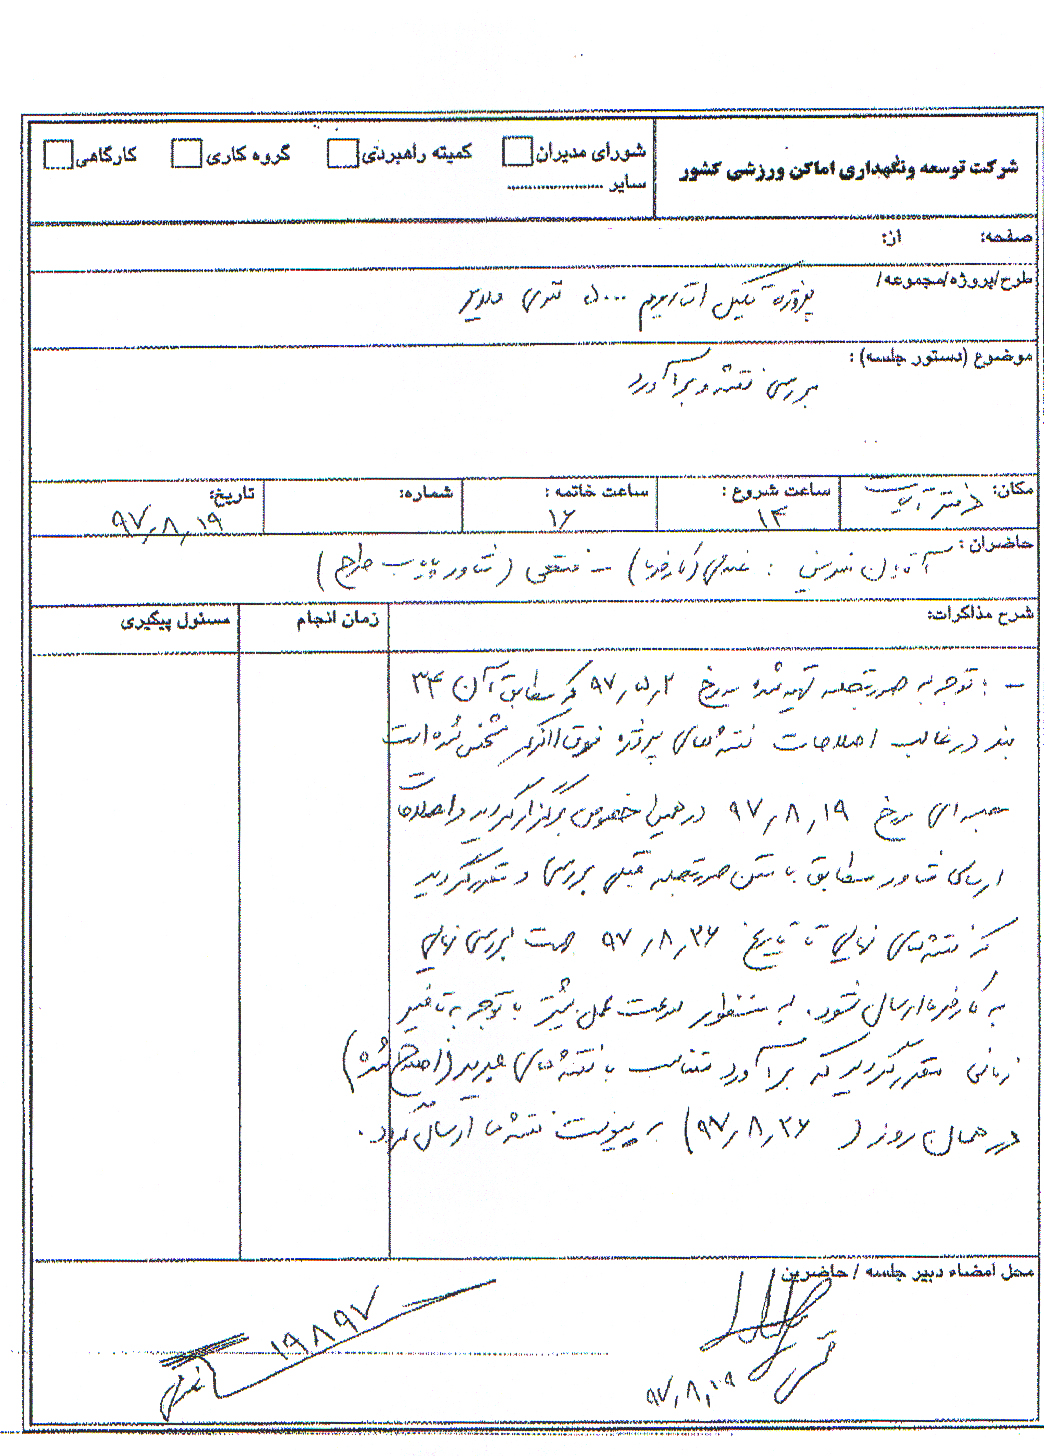 شرکت توسعه ونگهداری اماکن ورزشی کشور
شورای مدیران کمیته راهبردی گروه کاری کارگاهی
سایر ......................
صفحه: از:
طرح/پروژه/مجموعه/
پروژه تکمیل استادیوم ۵۰۰۰ نفری ملایر
موضوع (دستور جلسه) :
بررسی نقشه و برآورد
مکان: دفتر ساعت شروع : ۱۳ ساعت خاتمه : ۱۶ شماره: تاریخ: ۹۷٫۸٫۱۹
حاضران : آقایان مهندس : (کارفرما) – (مشاور پایاب طرح)
شرح مذاکرات: زمان انجام مسئول پیگیری
– با توجه به صورتجلسه تهیه شده مورخ ۹۷٫۵٫۲ که مطابق آن ۳۴
بند در غالب اصلاحات نقشه های پروژه فوق الذکر مشخص شده است
جلسه ای مورخ ۹۷٫۸٫۱۹ در همین خصوص برگزار گردید و اصلاحات
ارسالی مشاور مطابق با متن صورتجلسه قبلی بررسی و مقرر گردید
که نقشه های نهایی تا تاریخ ۹۷٫۸٫۲۶ جهت بررسی نهایی
به کارفرما ارسال شود. به منظور سرعت عمل بیشتر با توجه به تاخیر
زمانی مقرر گردید که برآورد متناسب با نقشه های جدید (اصلاح شده)
در همان روز (۹۷٫۸٫۲۶) به پیوست نقشه ها ارسال گردد.
محل امضاء دبیر جلسه / حاضرین
۹۷٫۸٫۱۹
۱۹۸۹۷